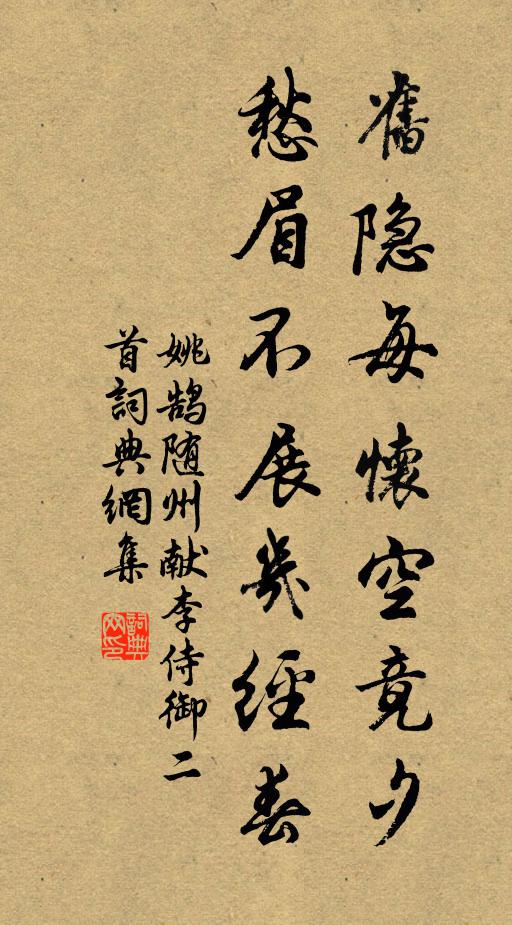 舊隐每懷空竟夕
愁眉不展幾經春
姚鹄随州献李侍御二
首詞典網集
詞典网印